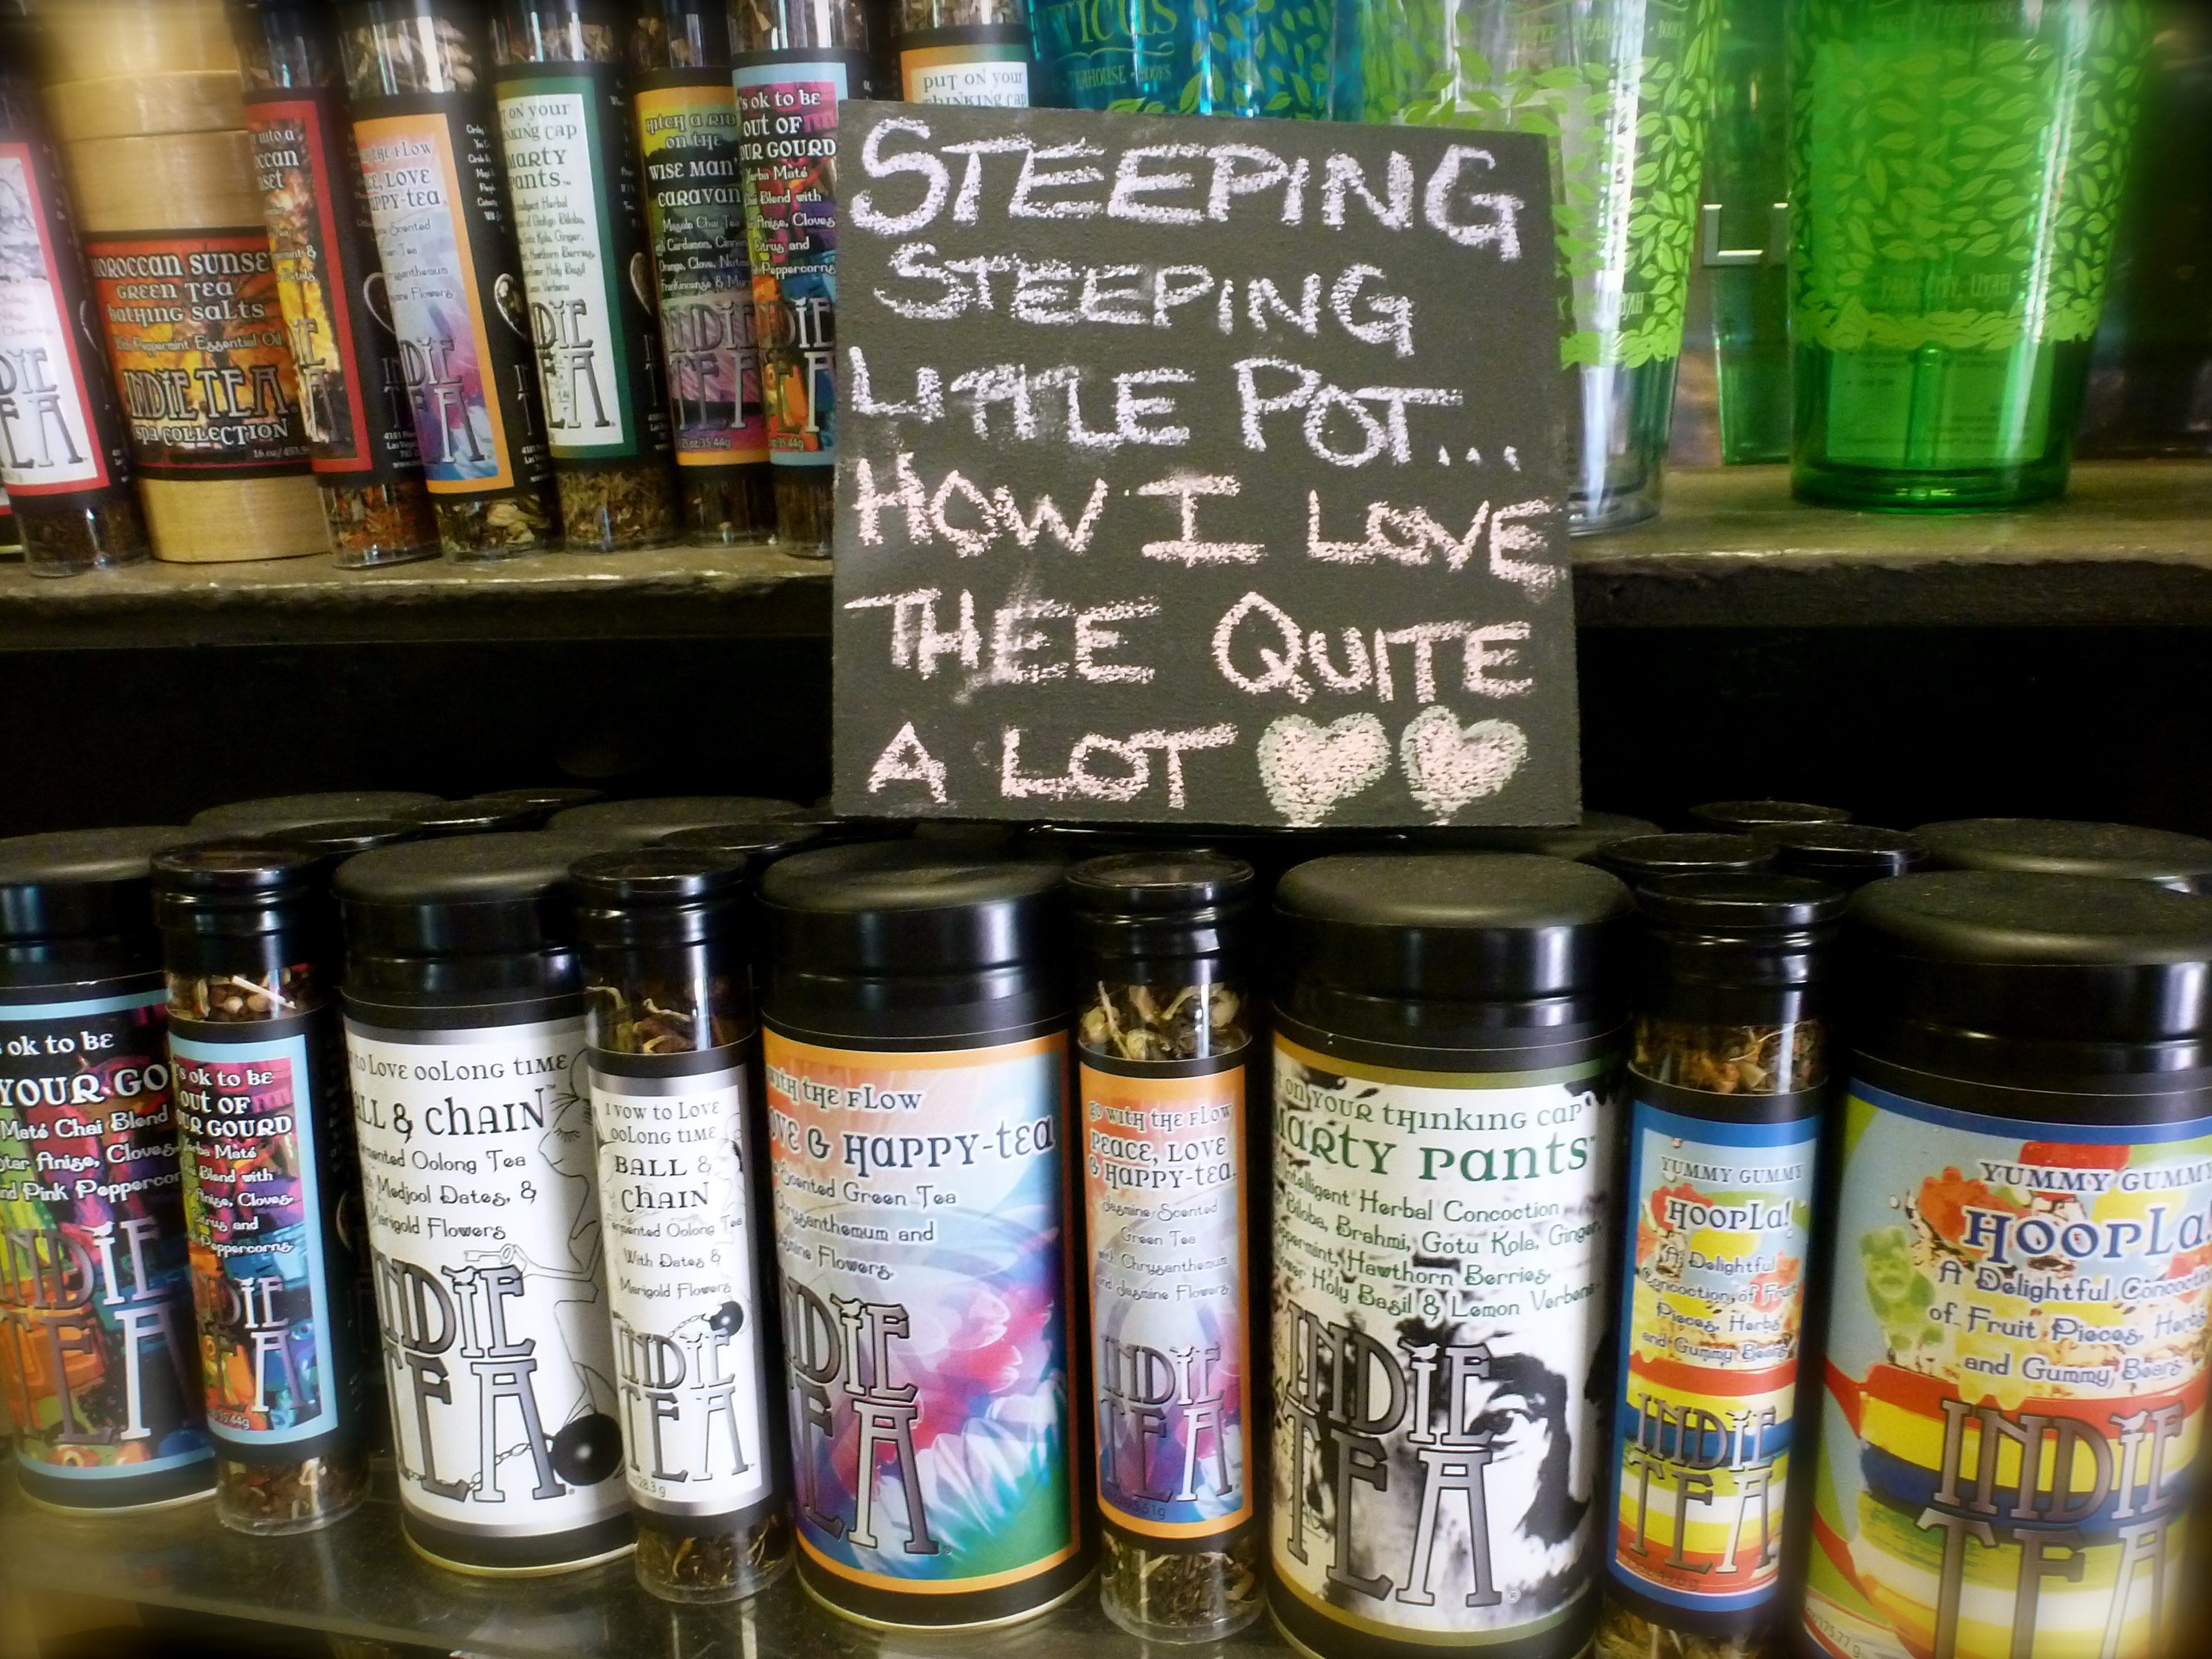 STEEPING
STEEPING
LITTLE POT...
HOW I LOVE
THEE QUITE
A LOT
MOROCCAN SUNSET
GREEN TEA
bathing SALTS
With Peppermint Essential Oil
INDIE TEA
SPA COLLECTION
THE FLOW
LOVE
HAPPY-tea
INDIE
TEA
ON YOUR
THINKING CAP
SMARTY
PANTS
INDIE
TEA
HITCH A RIDE
ON the
WISE MAN'S
CARAVAN
INDIE
TEA
it's ok to be
OUT OF
YOUR GOURD
Yerba Maté
Chai Blend with
Anise, Cloves
Citrus and
Peppercorns
PUT ON YOUR
THINKING CAP
TEAHOUSE
PARK CITY, UTAH
ok to be
YOUR GO
Maté Chai Blend
Star Anise, Cloves
and Pink Peppercor
INDIE
TEA
's ok to be
OUT OF
UR GOURD
Yerba Maté
Blend with
Anise, Cloves
Citrus and
Peppercorns
INDIE
TEA
to LOVE OOLONG TIME
ALL & CHAIN
Fermented Oolong Tea
Medjool Dates, &
Marigold Flowers
INDIE
TEA
I VOW to LOVE
OOLONG TIME
BALL &
CHAIN
Fermented Oolong Tea
With Dates &
Marigold Flowers
INDIE
TEA
WITH THE FLOW
LOVE & HAPPY-tea
Scented Green Tea
Chrysanthemum and
Jasmine Flowers
INDIE
TEA
GO WITH THE FLOW
PEACE, LOVE
& HAPPY-tea
Jasmine Scented
Green Tea
with Chrysanthemum
and Jasmine Flowers
INDIE
TEA
ON YOUR THINKING CAP
MARTY PANTS
Intelligent Herbal Concoction
Biloba, Brahmi, Gotu Kola, Ginger
Peppermint, Hawthorn Berries,
Holy Basil & Lemon Verbena
INDIE
TEA
YUMMY GUMMY
HOOPLA!
A Delightful
Concoction of Fruit
Pieces, Herbs
and Gummy Bears
INDIE
TEA
YUMMY GUMMY
HOOPLA!
A Delightful Concoction
of Fruit Pieces, Herbs
and Gummy Bears
INDIE
TEA